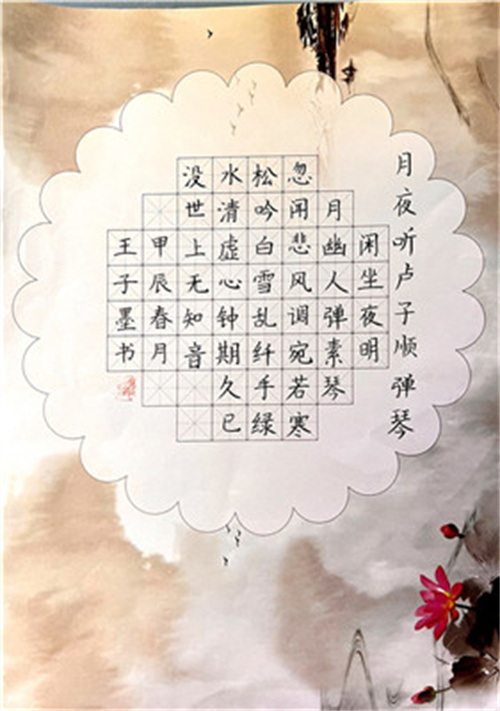 月夜听卢子顺弹琴
闲坐夜明
月幽人弹素琴
忽闻悲风调宛若寒
松吟白雪乱纤手绿
水清虚心钟期久已
没世上无知音
甲辰春月
王子墨书